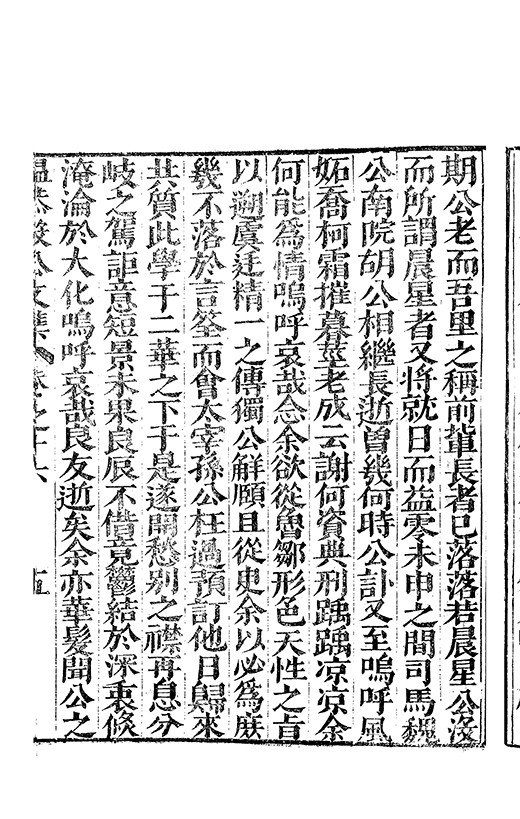 期公老而吾里之稱前輩長者已落落若晨星公沒
而所謂晨星者又將就日而益零未申之間司馬魏
公南院胡公相繼長逝曾幾何時公訃又至嗚呼風
妬喬柯霜摧暮莖老成云謝何資典刑踽踽凉凉余
何能為情嗚呼哀哉念余欲從魯鄒形色天性之旨
以遡虞廷精一之傳獨公解頤且從史余以必為庶
幾不落於言筌而會太宰孫公枉過預訂他日歸來
共質此學于二華之下于是遂開愁别之襟再息分
岐之駕詎意短景未果良辰不借竟鬱結於深衷倏
淹淪於大化嗚呼哀哉良友逝矣余亦華髮聞公之
温恭毅公文集 卷之十六 十五